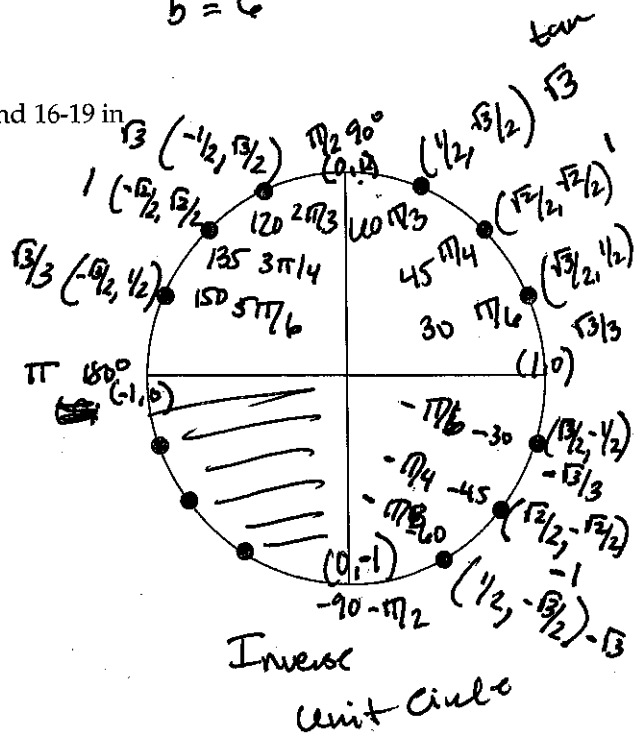 b = 6
tan
nd 16-19 in
√3 (-1/2, √3/2)
π/2 90°
(0, 1)
(1/2, √3/2) √3
1 (-√2/2, √2/2
120 2π/3
60 π/3
(√2/2, √2/2) 1
135 3π/4
45 π/4
√3/3 (-√3/2, 1/2)
150 5π/6
30 π/6
(√3/2, 1/2)
√3/3
π 180°
(-1, 0)
(1, 0)
-π/6 -30
(√3/2, -1/2)
-√3/3
-π/4 -45
(√2/2, -√2/2)
-1
-π/3 -60
(1/2, -√3/2) -√3
(0, -1)
-90 -π/2
Inverse
Unit Circle